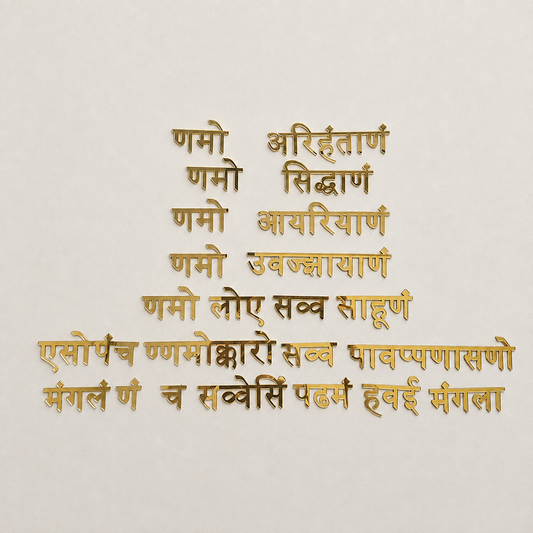 णमो अरिहंताणं
णमो सिद्धाणं
णमो आयरियाणं
णमो उवज्झायाणं
णमो लोए सव्व साहूणं
एसोपंच ण्णमोक्कारो सव्व पावप्पणासणो
मंगलं णं च सव्वेसिं पढमं हवई मंगला